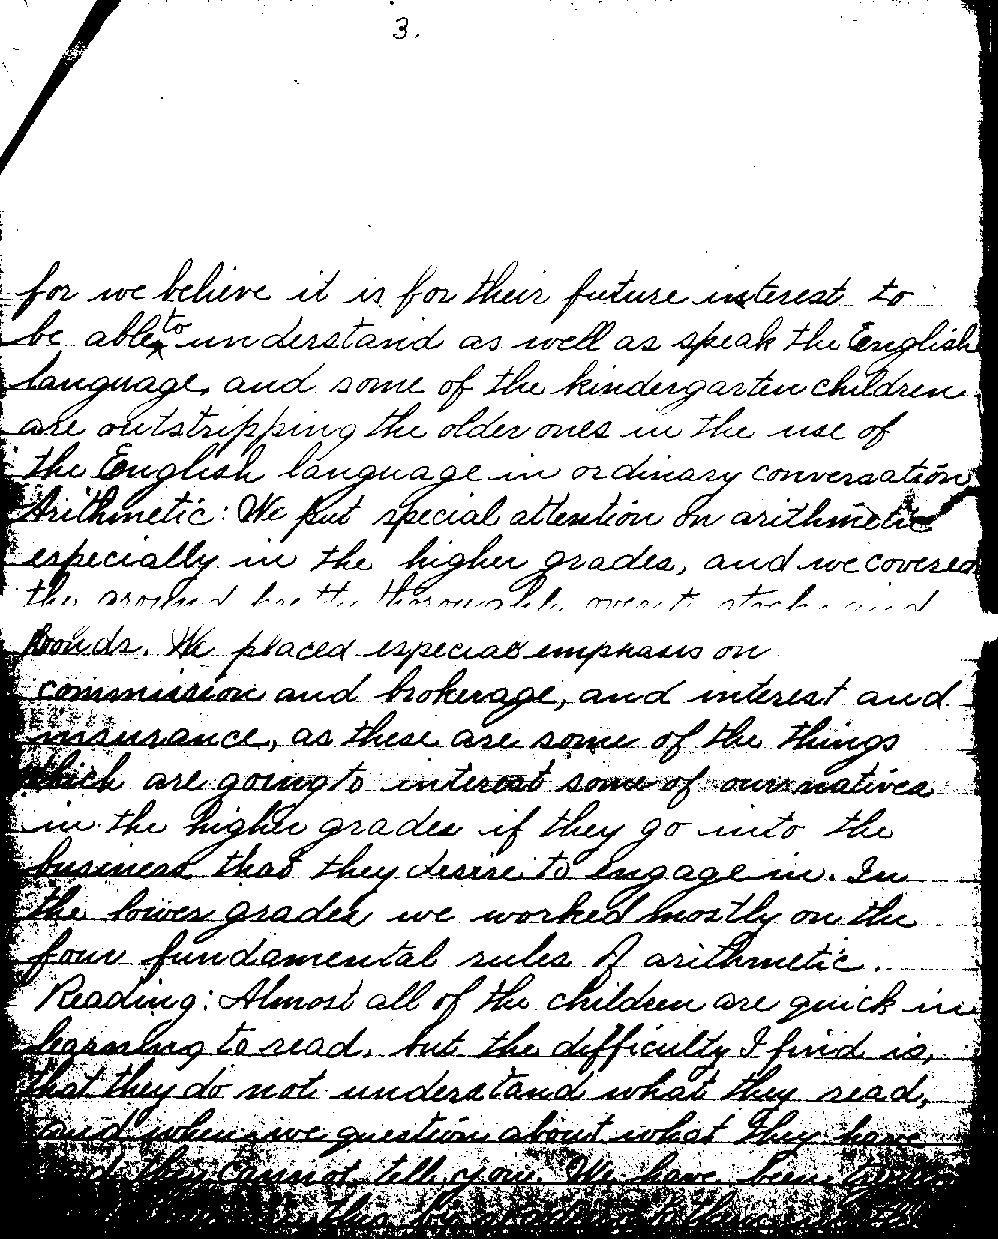 3.
for we believe it is for their future interest to
be able to understand as well as speak the English
language, and some of the kindergarten children
are outstripping the older ones in the use of
the English language in ordinary conversation
Arithmetic: We put special attention on arithmetic
especially in the higher grades, and we covered
the ground pretty thoroughly over to stocks and
bonds. We placed especial emphasis on
commission and brokerage, and interest and
insurance, as these are some of the things
which are going to interest some of our natives
in the higher grades if they go into the
business that they desire to engage in. In
the lower grades we worked mostly on the
four fundamental rules of arithmetic.
Reading: Almost all of the children are quick in
learning to read, but the difficulty I find is,
that they do not understand what they read,
and when we question about what they have
read they cannot tell you. We have been trying